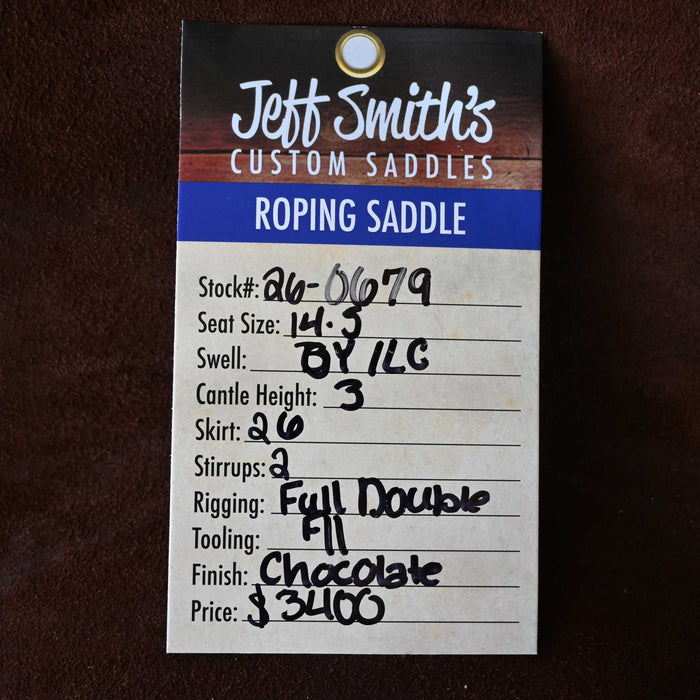 Jeff Smith's
CUSTOM SADDLES
ROPING SADDLE
Stock#: 26-0679
Seat Size: 14.5
Swell: BY ILC
Cantle Height: 3
Skirt: 26
Stirrups: 2
Rigging: Full Double
Tooling:
Finish: Chocolate
Price: $3400